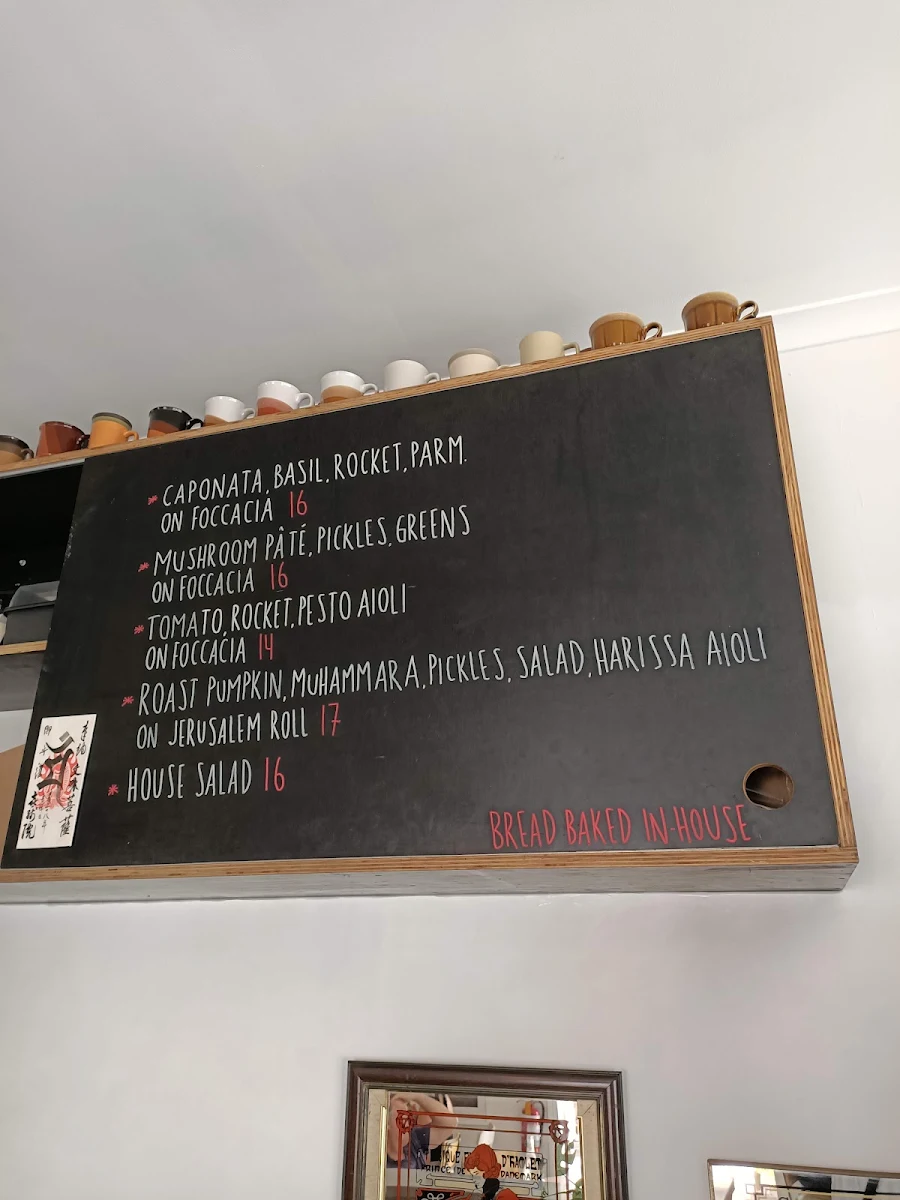 * CAPONATA, BASIL, ROCKET, PARM.
ON FOCCACIA 16
* MUSHROOM PÂTÉ, PICKLES, GREENS
ON FOCCACIA 16
* TOMATO, ROCKET, PESTO AIOLI
ON FOCCACIA 14
* ROAST PUMPKIN, MUHAMMARA, PICKLES, SALAD, HARISSA AIOLI
ON JERUSALEM ROLL 17
* HOUSE SALAD 16
BREAD BAKED IN-HOUSE
D'HAMLET
PRINCE DE DANEMARK